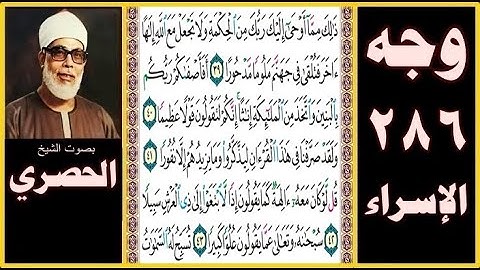 وجه
٢٨٦
الإسراء
ذَٰلِكَ مِمَّا أَوْحَىٰ إِلَيْكَ رَبُّكَ مِنَ الْحِكْمَةِ وَلَا تَجْعَلْ مَعَ اللَّهِ إِلَٰهًا
ءَاخَرَ فَتُلْقَىٰ فِي جَهَنَّمَ مَلُومًا مَّدْحُورًا ٣٩ أَفَأَصْفَاكُمْ رَبُّكُم
بِالْبَنِينَ وَاتَّخَذَ مِنَ الْمَلَائِكَةِ إِنَاثًا إِنَّكُمْ لَتَقُولُونَ قَوْلًا عَظِيمًا ٤٠
وَلَقَدْ صَرَّفْنَا فِي هَٰذَا الْقُرْءَانِ لِيَذَّكَّرُوا وَمَا يَزِيدُهُمْ إِلَّا نُفُورًا ٤١
قُل لَّوْ كَانَ مَعَهُ ءَالِهَةٌ كَمَا يَقُولُونَ إِذًا لَّابْتَغَوْا إِلَىٰ ذِي الْعَرْشِ سَبِيلًا
٤٢ سُبْحَانَهُ وَتَعَالَىٰ عَمَّا يَقُولُونَ عُلُوًّا كَبِيرًا ٤٣ تُسَبِّحُ لَهُ السَّمَاوَاتُ
بصوت الشيخ
الحصري